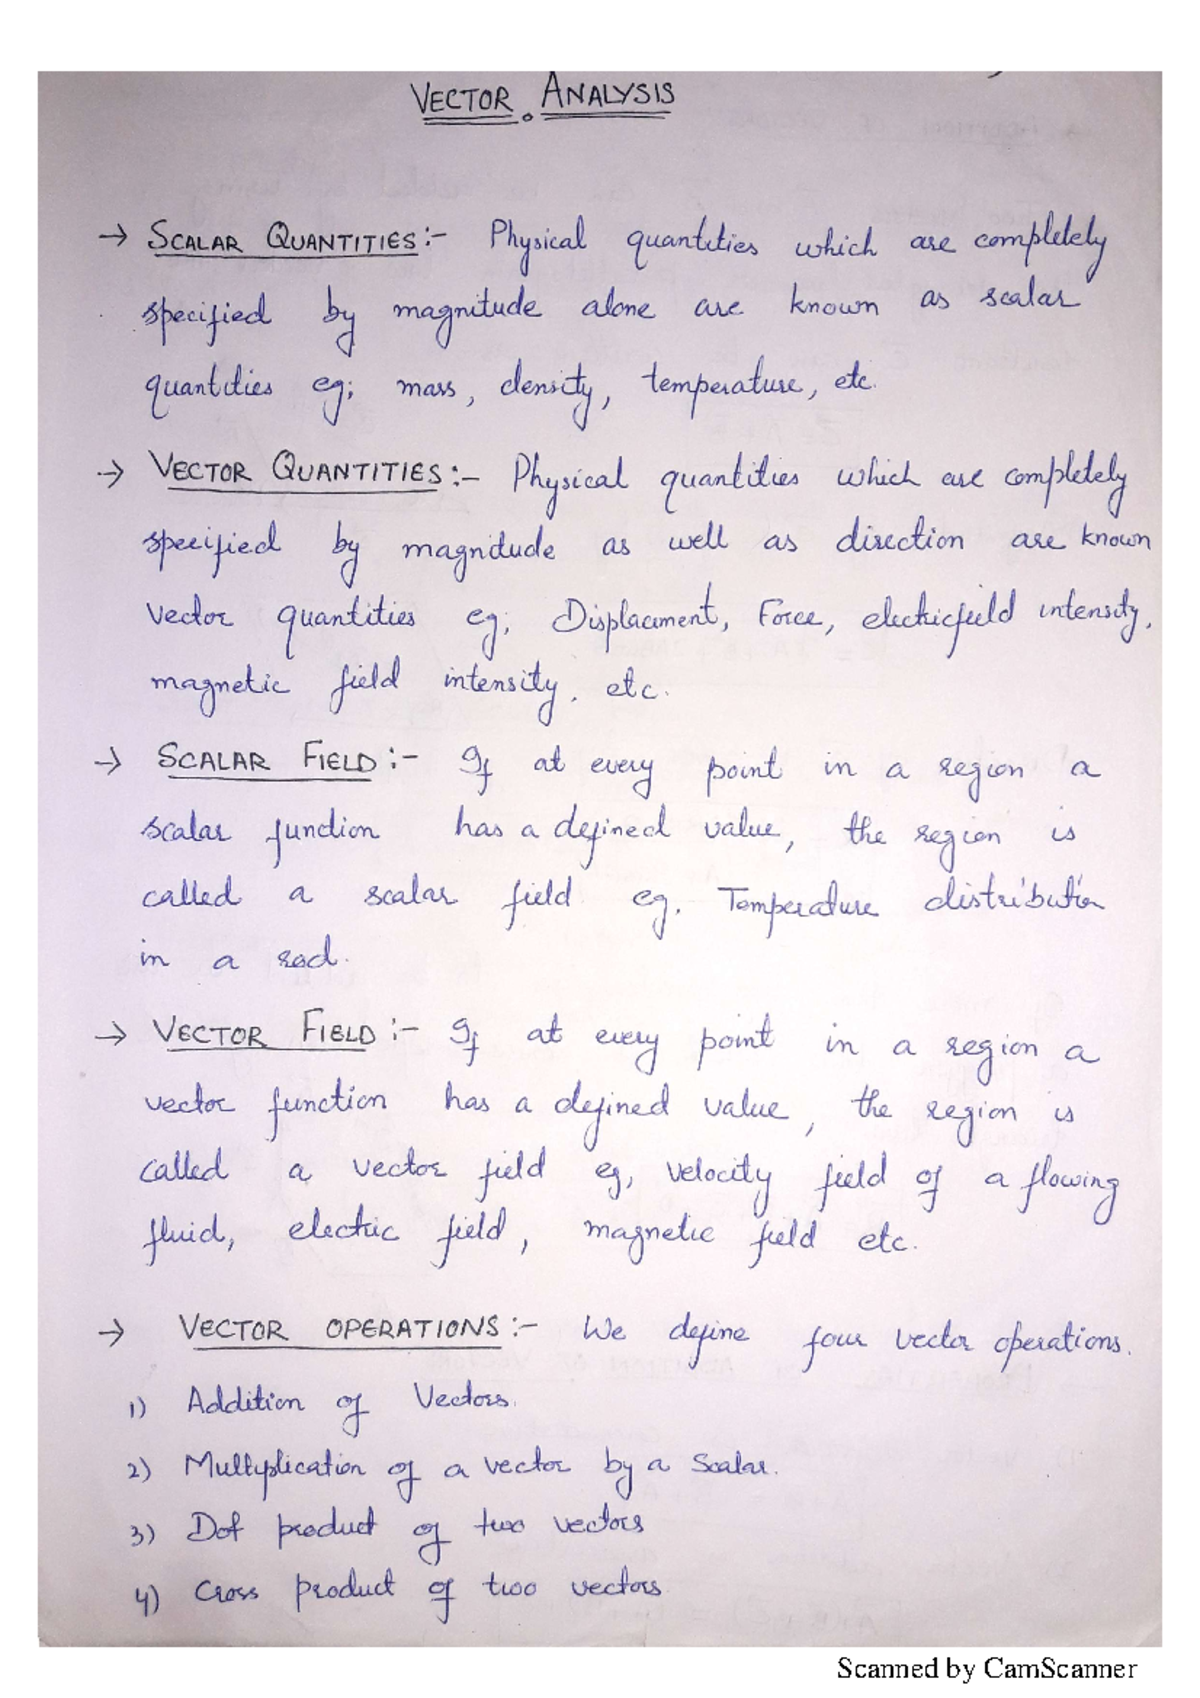 VECTOR ANALYSIS
→ SCALAR QUANTITIES:- Physical quantities which are completely
specified by magnitude alone are known as scalar
quantities eg; mass, density, temperature, etc.
→ VECTOR QUANTITIES:- Physical quantities which are completely
specified by magnitude as well as direction are known
vector quantities eg; Displacement, Force, electricfield intensity,
magnetic field intensity, etc.
→ SCALAR FIELD:- If at every point in a region a
scalar function has a defined value, the region is
called a scalar field eg. Temperature distribution
in a rod.
→ VECTOR FIELD:- If at every point in a region a
vector function has a defined value, the region is
called a vector field eg, velocity field of a flowing
fluid, electric field, magnetic field etc.
→ VECTOR OPERATIONS:- We define four vector operations.
1) Addition of Vectors.
2) Multiplication of a vector by a Scalar.
3) Dot product of two vectors
4) Cross product of two vectors.
Scanned by CamScanner